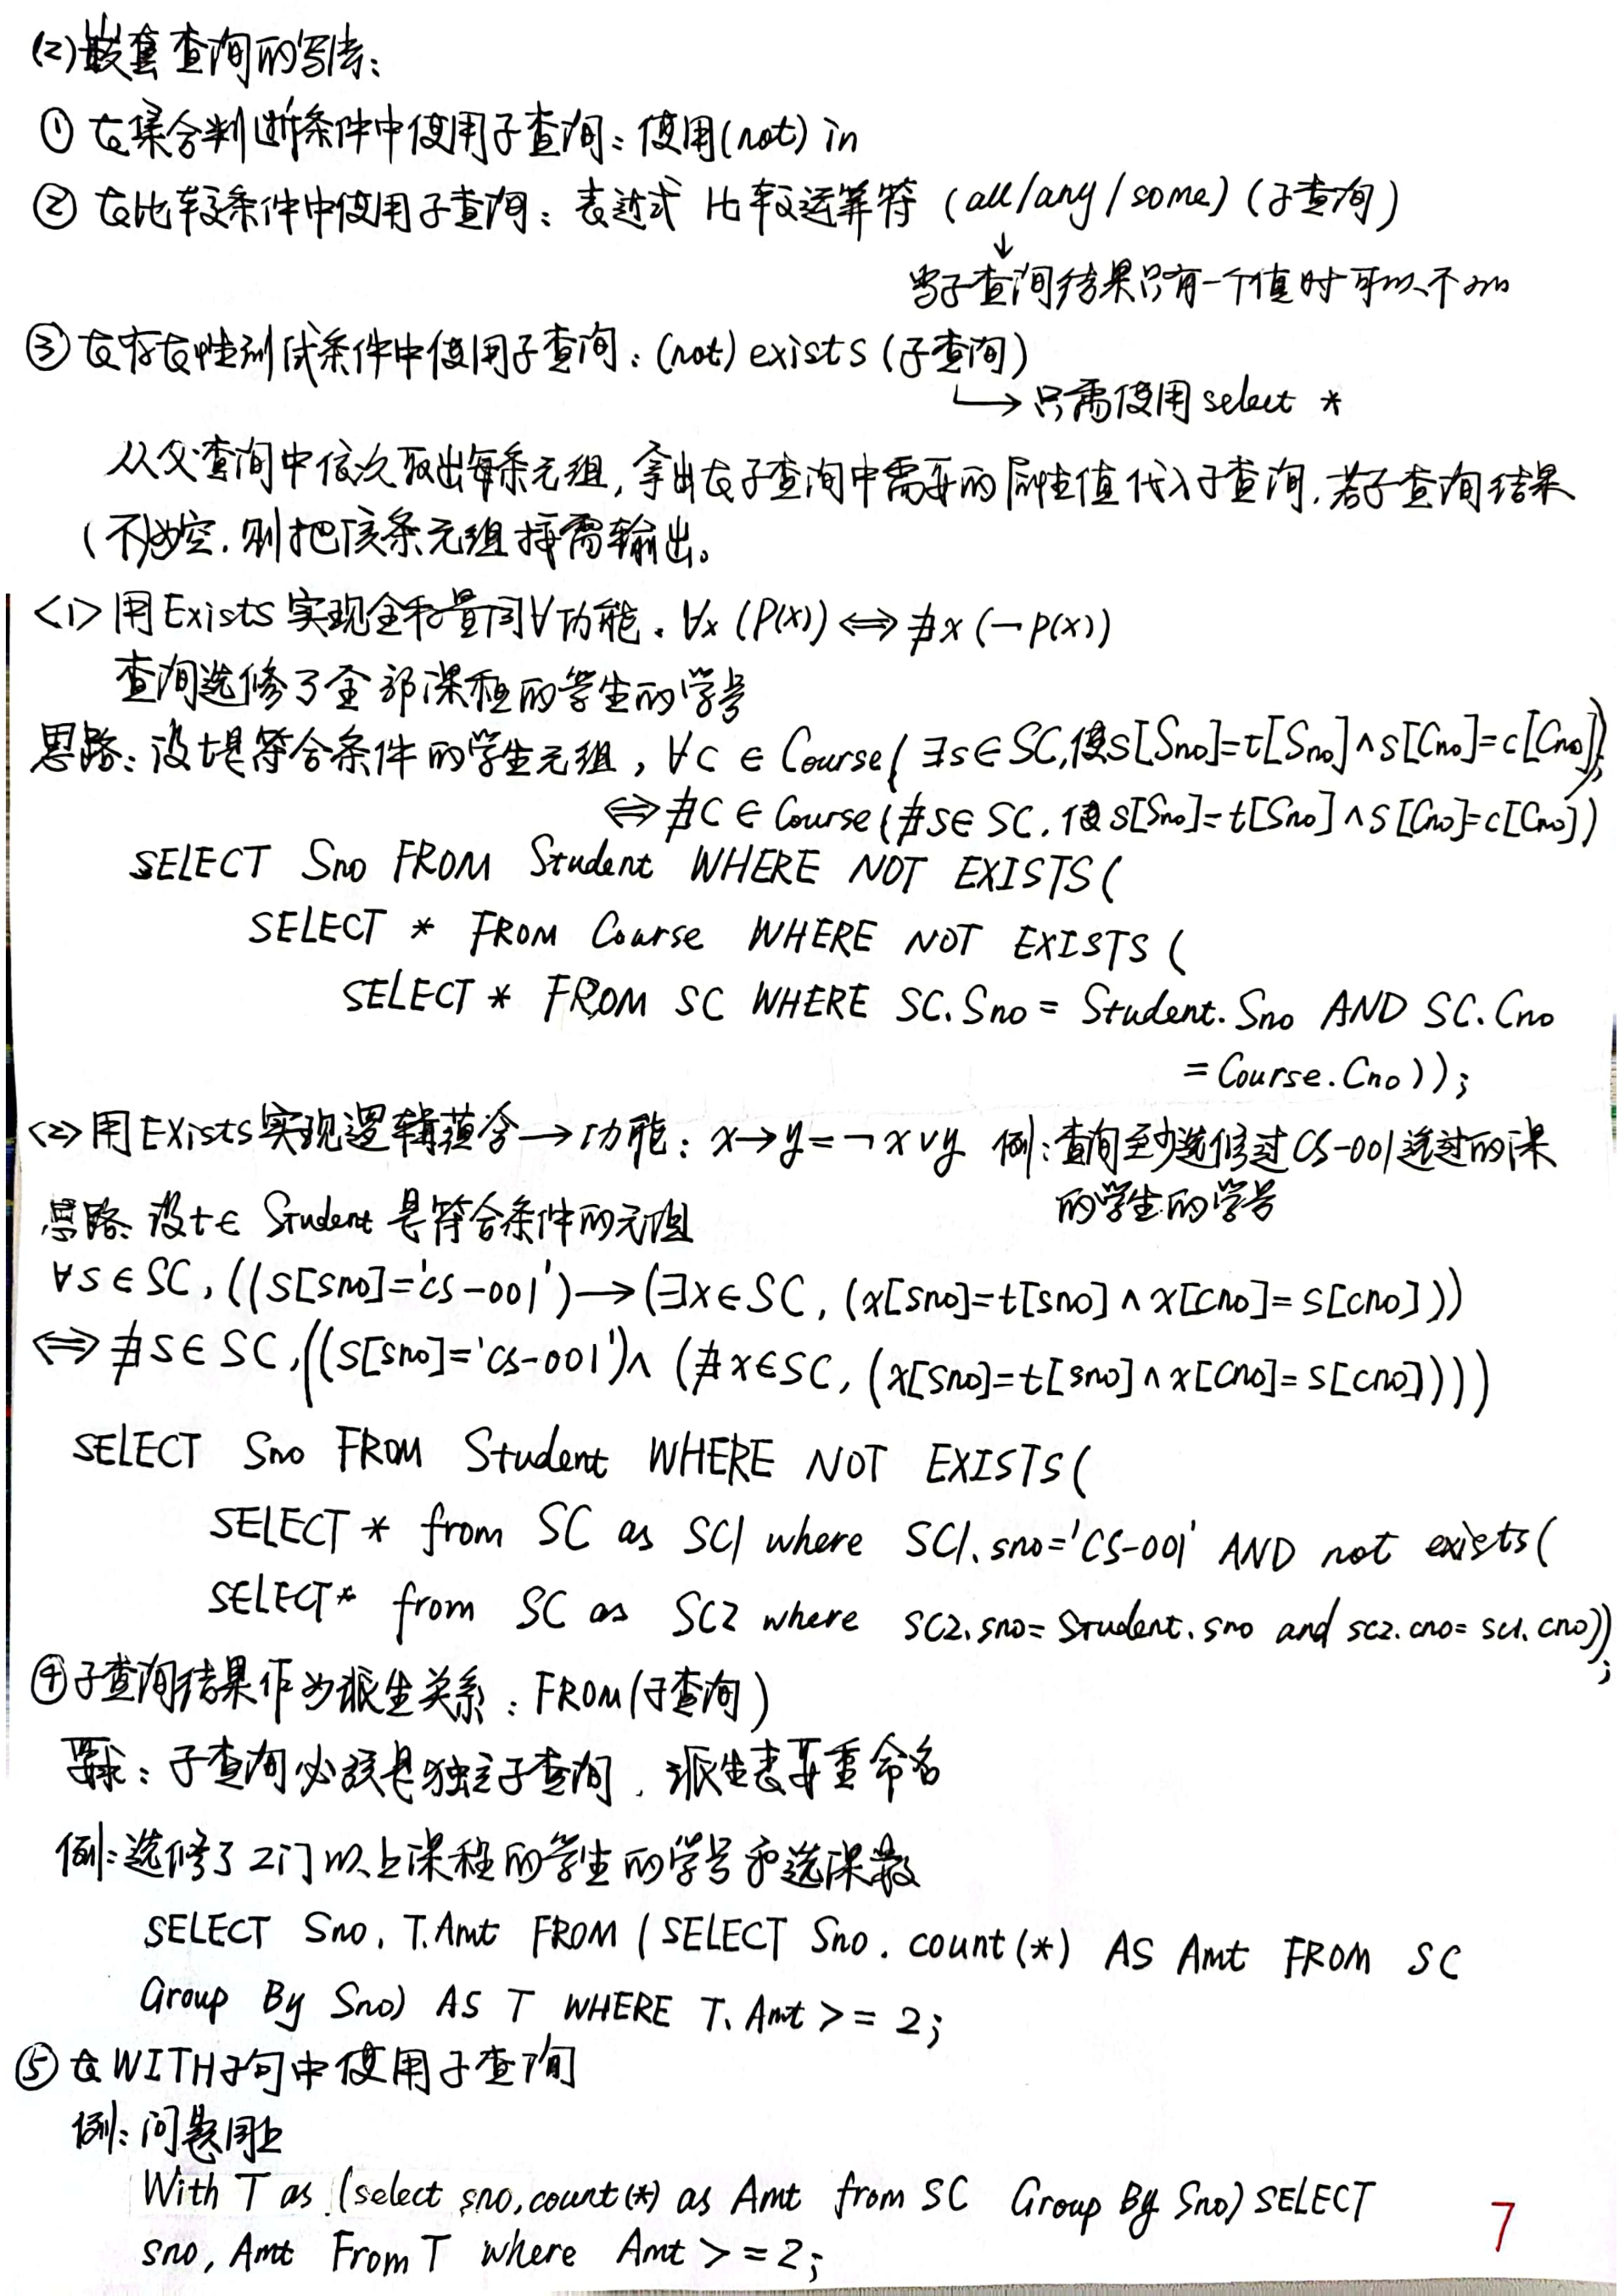 (2)嵌套查询的写法:
① 在集合判断条件中使用子查询:使用(not) in
② 在比较条件中使用子查询:表达式 比较运算符 (all/any/some) (子查询)
↓
当子查询结果只有一个值时可以不加
③ 在存在性测试条件中使用子查询:(not) exists (子查询)
↳ 只需使用 select *
从父查询中依次取出每条元组,拿出在子查询中需要的属性值代入子查询,若子查询结果
(不)为空,则把该条元组按需输出。
<1> 用Exists实现全称量词∀功能。∀x (P(x)) ⟺ ∄x (¬P(x))
查询选修了全部课程的学生的学号
思路:设t是符合条件的学生元组,∀C ∈ Course( ∃s∈SC,使s[Sno]=t[Sno]∧s[Cno]=c[Cno]);
⟺ ∄C ∈ Course(∄s∈ SC,使s[Sno]=t[Sno]∧s[Cno]=c[Cno])
SELECT Sno FROM Student WHERE NOT EXISTS(
SELECT * FROM Course WHERE NOT EXISTS (
SELECT * FROM SC WHERE SC.Sno = Student.Sno AND SC.Cno
=Course.Cno));
<2> 用Exists实现逻辑蕴含→功能:x→y=¬x∨y 例:查询至少选修过CS-001选过的课
的学生的学号
思路:设t∈ Student 是符合条件的元组
∀s∈SC,((s[sno]='cs-001')→(∃x∈SC,(x[sno]=t[sno]∧x[cno]=s[cno]))
⟺ ∄s∈SC,((s[sno]='cs-001')∧ (∄x∈SC,(x[sno]=t[sno]∧x[cno]=s[cno])))
SELECT Sno FROM Student WHERE NOT EXISTS(
SELECT * from SC as SC1 where SC1.sno='CS-001' AND not exists(
SELECT* from SC as SC2 where SC2.sno=Student.sno and sc2.cno=sc1.cno));
④子查询结果作为派生关系:FROM(子查询)
要求:子查询必须是独立子查询,派生表要重命名
例:选修了2门以上课程的学生的学号和选课数
SELECT Sno, T.Amt FROM (SELECT Sno, count(*) AS Amt FROM SC
Group By Sno) AS T WHERE T.Amt >= 2;
⑤ 在WITH子句中使用子查询
例:问题同上
With T as (select sno,count(*) as Amt from SC Group By Sno) SELECT
sno, Amt From T where Amt >=2;
7